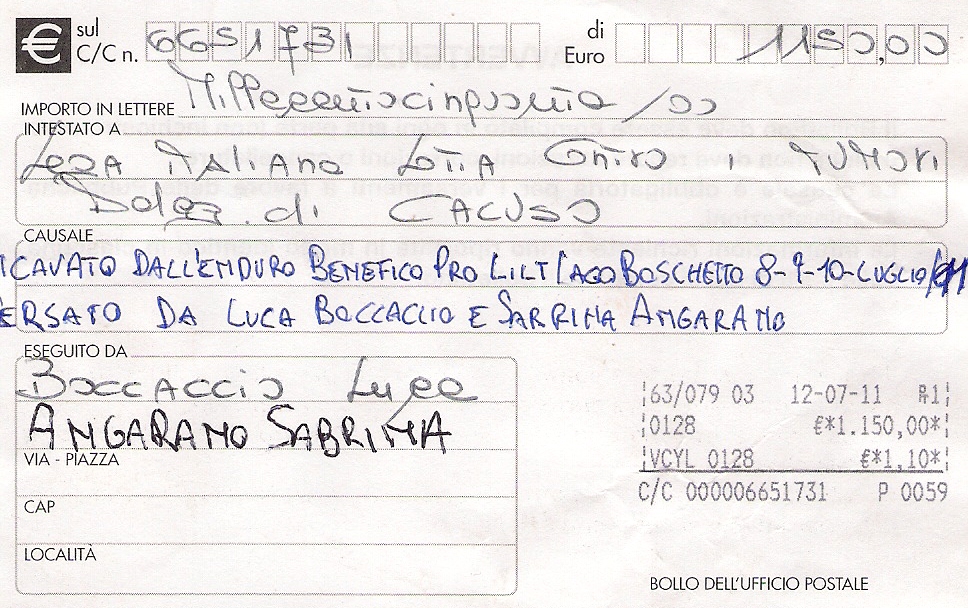 € sul C/C n. 6651731 di Euro 1150,00
IMPORTO IN LETTERE Millecentocinquanta /00
INTESTATO A
Lega Italiana Lotta Contro i TUMORI
Deleg. di CACUSO
CAUSALE
ICAVATO DALL'ENDURO BENEFICO PRO LILT LAGO BOSCHETTO 8-9-10-LUGLIO/011
ERSATO DA LUCA BOCCACCIO E SABRINA ANGARANO
ESEGUITO DA
Boccaccio Luca
ANGARANO SABRINA
VIA - PIAZZA
CAP
LOCALITÀ
63/079 03 12-07-11 R1
0128 €*1.150,00*
VCYL 0128 €*1,10*
C/C 000006651731 P 0059
BOLLO DELL'UFFICIO POSTALE